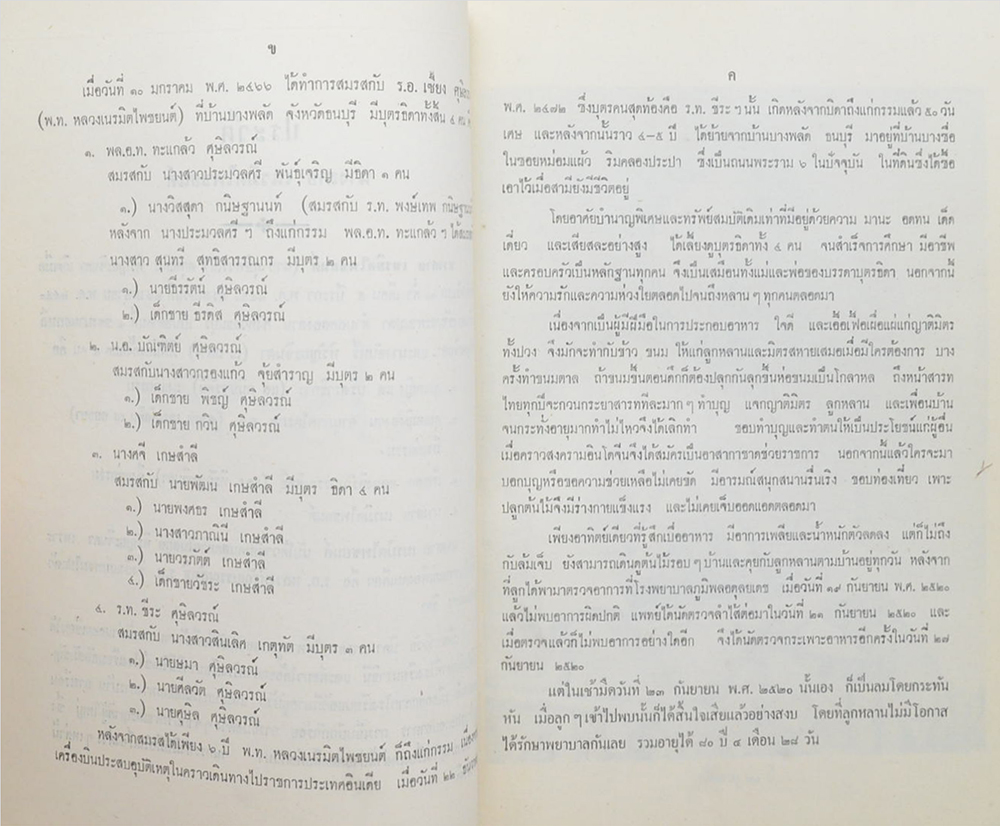 ข
เมื่อวันที่ ๑๐ มกราคม พ.ศ. ๒๔๖๖ ได้ทำการสมรสกับ ร.อ. เชี้ยง
(พ.ท. หลวงเนรมิตไพชยนต์) ที่บ้านบางพลัด จังหวัดธนบุรี มีบุตรธิดาทั้งสิ้น ๔ คน
๑. พล.อ.ท. ทะแกล้ว ศุษิลวรณ์
สมรสกับ นางสาวประมวลศรี พันธุ์เจริญ มีธิดา ๑ คน
๑.) นางวิสสุตา กนิษฐานนท์ (สมรสกับ ร.ท. พงษ์เทพ กนิษฐานนท์
หลังจาก นางประมวลศรี ฯ ถึงแก่กรรม พล.อ.ท. ทะแกล้ว ฯ
นางสาว สุนทรี สุทธิสารรณกร มีบุตร ๒ คน
๑.) นายธีรรัตน์ ศุษิลวรณ์
๒.) เด็กชาย ธีรดิส ศุษิลวรณ์
๒. น.อ. บัณฑิตย์ ศุษิลวรณ์
สมรสกับนางสาวกรองแก้ว จุ้ยสำราญ มีบุตร ๒ คน
๑.) เด็กชาย พิชญ์ ศุษิลวรณ์
๒.) เด็กชาย กวิน ศุษิลวรณ์
๓. นางคจี เกษสำลี
สมรสกับ นายพัฒน เกษสำลี มีบุตร ธิดา ๔ คน
๑.) นายพงศธร เกษสำลี
๒.) นางสาวภาณินี เกษสำลี
๓.) นายวรภัตต์ เกษสำลี
๔.) เด็กชายวัชระ เกษสำลี
๔. ร.ท. ชีระ ศุษิลวรณ์
สมรสกับ นางสาวสินเลิศ เกตุทัต มีบุตร ๓ คน
๑.) นายษมา ศุษิลวรณ์
๒.) นายศีลวัต ศุษิลวรณ์
๓.) นายศุษิล ศุษิลวรณ์
หลังจากสมรสได้เพียง ๖ ปี พ.ท. หลวงเนรมิตไพชยนต์ ก็ถึงแก่กรรม
เครื่องบินประสบอุบัติเหตุในคราวเดินทางไปราชการประเทศอินเดีย เมื่อวันที่ ๒๒
ค
พ.ศ. ๒๔๗๒ ซึ่งบุตรคนสุดท้องคือ ร.ท. ชีระ ฯ นั้น เกิดหลังจากบิดาถึงแก่กรรมแล้ว ๕๐ วัน
เศษ และหลังจากนั้นราว ๔-๕ ปี ได้ย้ายจากบ้านบางพลัด ธนบุรี มาอยู่ที่บ้านบางซื่อ
ในซอยหม่อมแผ้ว ริมคลองประปา ซึ่งเป็นถนนพระราม ๖ ในปัจจุบัน ในที่ดินซึ่งได้ซื้อ
เอาไว้เมื่อสามียังมีชีวิตอยู่
โดยอาศัยบำนาญพิเศษและทรัพย์สมบัติเดิมเท่าที่มีอยู่ด้วยความ มานะ อดทน เด็ด
เดี่ยว และเสียสละอย่างสูง ได้เลี้ยงดูบุตรธิดาทั้ง ๔ คน จนสำเร็จการศึกษา มีอาชีพ
และครอบครัวเป็นหลักฐานทุกคน จึงเป็นเสมือนทั้งแม่และพ่อของบรรดาบุตรธิดา นอกจากนี้
ยังให้ความรักและความห่วงใยตลอดไปจนถึงหลาน ๆ ทุกคนตลอดมา
เนื่องจากเป็นผู้มีฝีมือในการประกอบอาหาร ใจดี และเอื้อเฟื้อเผื่อแผ่แก่ญาติมิตร
ทั้งปวง จึงมักจะทำกับข้าว ขนม ให้แก่ลูกหลานและมิตรสหายเสมอเมื่อมีใครต้องการ บาง
ครั้งทำขนมตาล ถ้าขนมขึ้นตอนดึกก็ต้องปลุกกันลุกขึ้นห่อขนมเป็นโกลาหล ถึงหน้าสารท
ไทยทุกปีจะกวนกระยาสารททีละมาก ๆ ทำบุญ แจกญาติมิตร ลูกหลาน และเพื่อนบ้าน
จนกระทั่งอายุมากทำไม่ไหวจึงได้เลิกทำ ชอบทำบุญและทำตนให้เป็นประโยชน์แก่ผู้อื่น
เมื่อคราวสงครามอินโดจีนจึงได้สมัครเป็นอาสากาชาดช่วยราชการ นอกจากนี้แล้วใครจะมา
บอกบุญหรือขอความช่วยเหลือไม่เคยขัด มีอารมณ์สนุกสนานรื่นเริง ชอบท่องเที่ยว เพาะ
ปลูกต้นไม้จึงมีร่างกายแข็งแรง และไม่เคยเจ็บออดแอดตลอดมา
เพียงอาทิตย์เดียวที่รู้สึกเบื่ออาหาร มีอาการเพลียและน้ำหนักตัวลดลง แต่ก็ไม่ถึง
กับล้มเจ็บ ยังสามารถเดินดูต้นไม้รอบ ๆ บ้านและคุยกับลูกหลานตามบ้านอยู่ทุกวัน หลังจาก
ที่ลูกได้พามาตรวจอาการที่โรงพยาบาลภูมิพลอดุลยเดช เมื่อวันที่ ๑๙ กันยายน พ.ศ. ๒๕๒๐
แล้วไม่พบอาการผิดปกติ แพทย์ได้นัดตรวจลำไส้ต่อมาในวันที่ ๒๑ กันยายน ๒๕๒๐ และ
เมื่อตรวจแล้วก็ไม่พบอาการอย่างใดอีก จึงได้นัดตรวจกระเพาะอาหารอีกครั้งในวันที่ ๒๗
กันยายน ๒๕๒๐
แต่ในเช้ามืดวันที่ ๒๓ กันยายน พ.ศ. ๒๕๒๐ นั้นเอง ก็เป็นลมโดยกระทัน
หัน เมื่อลูก ๆ เข้าไปพบนั้นก็ได้สิ้นใจเสียแล้วอย่างสงบ โดยที่ลูกหลานไม่มีโอกาส
ได้รักษาพยาบาลกันเลย รวมอายุได้ ๘๐ ปี ๔ เดือน ๒๘ วัน